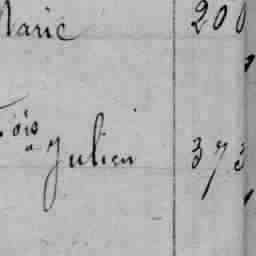 Marie 200
Fois
a Julien 373